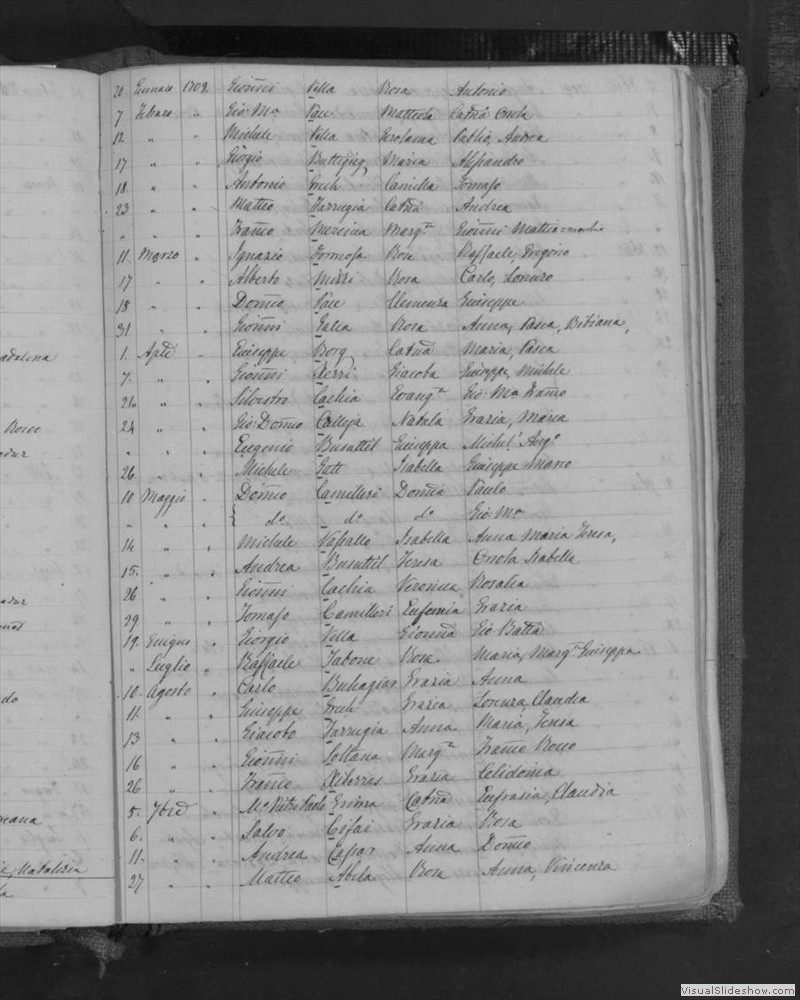 adalena
Roseo
do
20 Gennaro 1709. Gioñni Villa Rosa Antonio
7 Febraro " " Gio: Mª Pace Matteola Catnã Orsola
12 " " Michele Villa Gerolama Publio, Andrea
17 " " Giorgio Buttigieg Maria Alessandro
18 " " Antonio Grech Camilla Tomaso
23 " " Matteo Farrugia Catnã Andrea
" " " Franco Mercieca Margª Gioñni Mattia
11 Marzo " Ignazio Formosa Rosa Raffaele, Gregorio
17 " " Alberto Mizzi Rosa Carlo, Lonzo
18 " " Domco Pace Clemenza Giuseppe
31 " " Gioñni Galea Rosa Anna, Pasca, Bibiana,
1. Aple " Giuseppe Borg Catnã Maria, Pasca
7. " " Gioñni Xerri Giacoba Giuseppe, Michele
21. " " Silvestro Cachia Evangª Gio: Mª Franco
24 " " Gio: Domco Calleja Natala Grazia, Maria
" " " Eugenio Busuttil Giuseppa Michel! Angº
26 " " Michele Gatt Isabella Giuseppe Marco
10 Maggio " Domco Camilleri Domca Paulo
" " " { dº dº dº Gio: Mª
14 " " Michele Vassallo Isabella Anna Maria Teresa,
15. " " Andrea Busuttil Teresa Orsola Isabella
26 " " Gioñni Cachia Veronica Rosalia
29 " " Tomaso Camilleri Eufemia Grazia
19. Giugno " Giorgio Villa Gionnã Gio Batta
" Luglio " Raffaele Tabone Rosa Maria, Margª Giuseppa
10. Agosto " Carlo Buhagiar Grazia Anna
11. " " Giuseppe Grech Grazia Lorenza, Claudia
13 " " Giacobo Farrugia Anna Maria, Teresa
16 " " Gioñni Soltana Margª Franco Rocco
26 " " Franco Xiberras Grazia Celidonia
5. 7bre " Mº Pietro Paolo Grima Catnã Eufrasia, Claudia
6. " " Salvo Cifai Grazia Rosa
11. " " Andrea Caspar Anna Domco
27 " " Matteo Abela Rosa Anna, Vincenza
VisualSlideshow.com